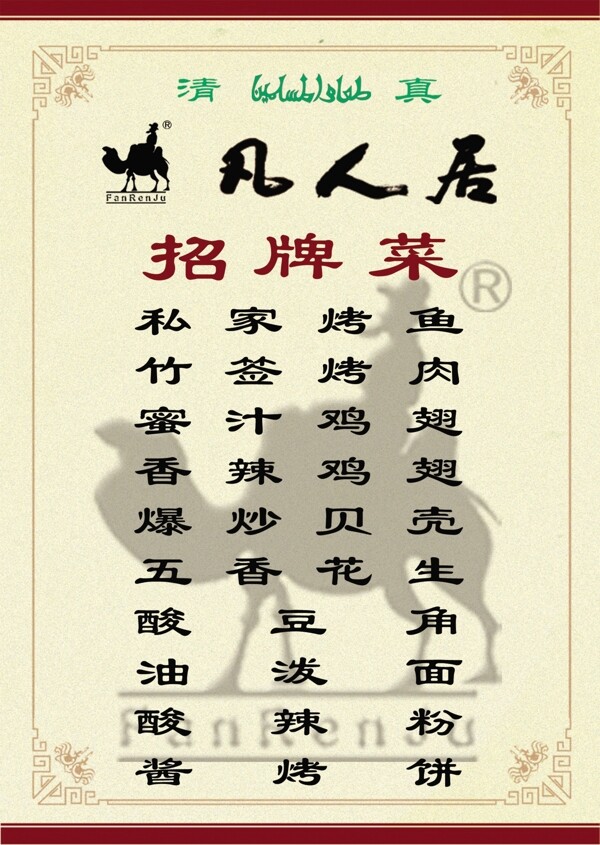 清 طعام المسلمين 真
® 凡人居
FanRenJu
招牌菜
®
私家烤鱼
竹签烤肉
蜜汁鸡翅
香辣鸡翅
爆炒贝壳
五香花生
酸豆角
油泼面
酸辣粉
酱烤饼
FanRenJu